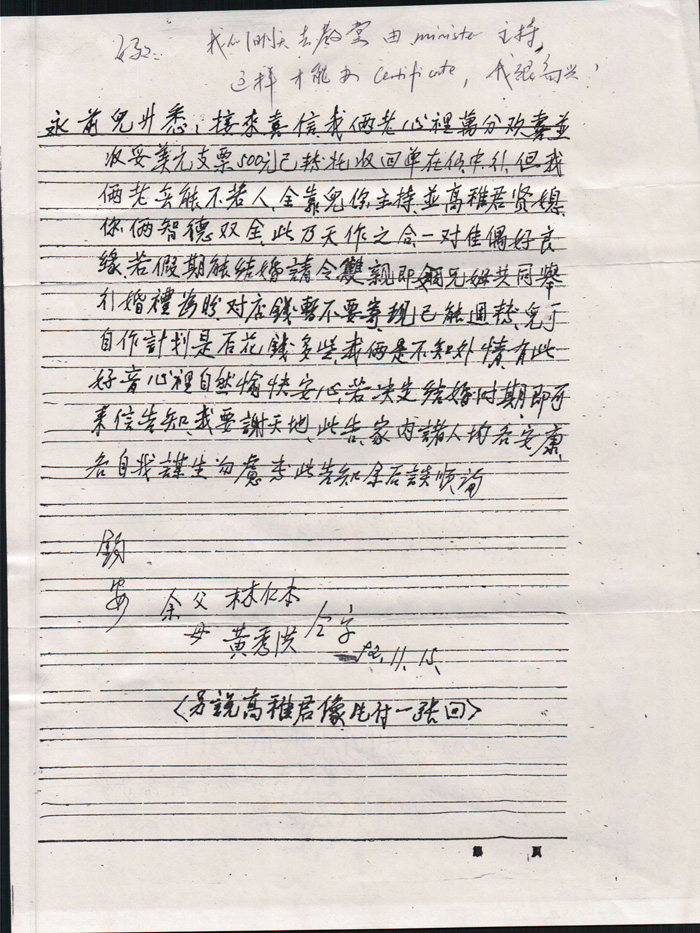 我们明天去教堂由 minister 主持,
这样才能办 Certificate, 我很高兴!
永前兒升悉:接來真信我俩老心裡萬分欢喜並
收妥美元支票500元已轉托收回单在侨中行,但我
俩老无能不若人,全靠兒你主持,並高稚君贤媳,
你俩智德双全,此乃天作之合,一对佳偶好良
缘若假期能結婚請令雙親即姻兄姆共同舉
行婚禮為盼对店錢暫不要寄現已能週轉,兒可
自作計划是否花錢多些,我俩是不知外情,有此
好音心裡自然愉快安心,若决定結婚时期即可
来信告知,我要謝天地,此告,家内諸人均各安康,
各自我謀生勿慮,专此告知余后談順請
鈞
安 余父 林仁本
母 黄秀洪 仝字
92.11.15.
<另說高稚君像片付一张回>
第 頁